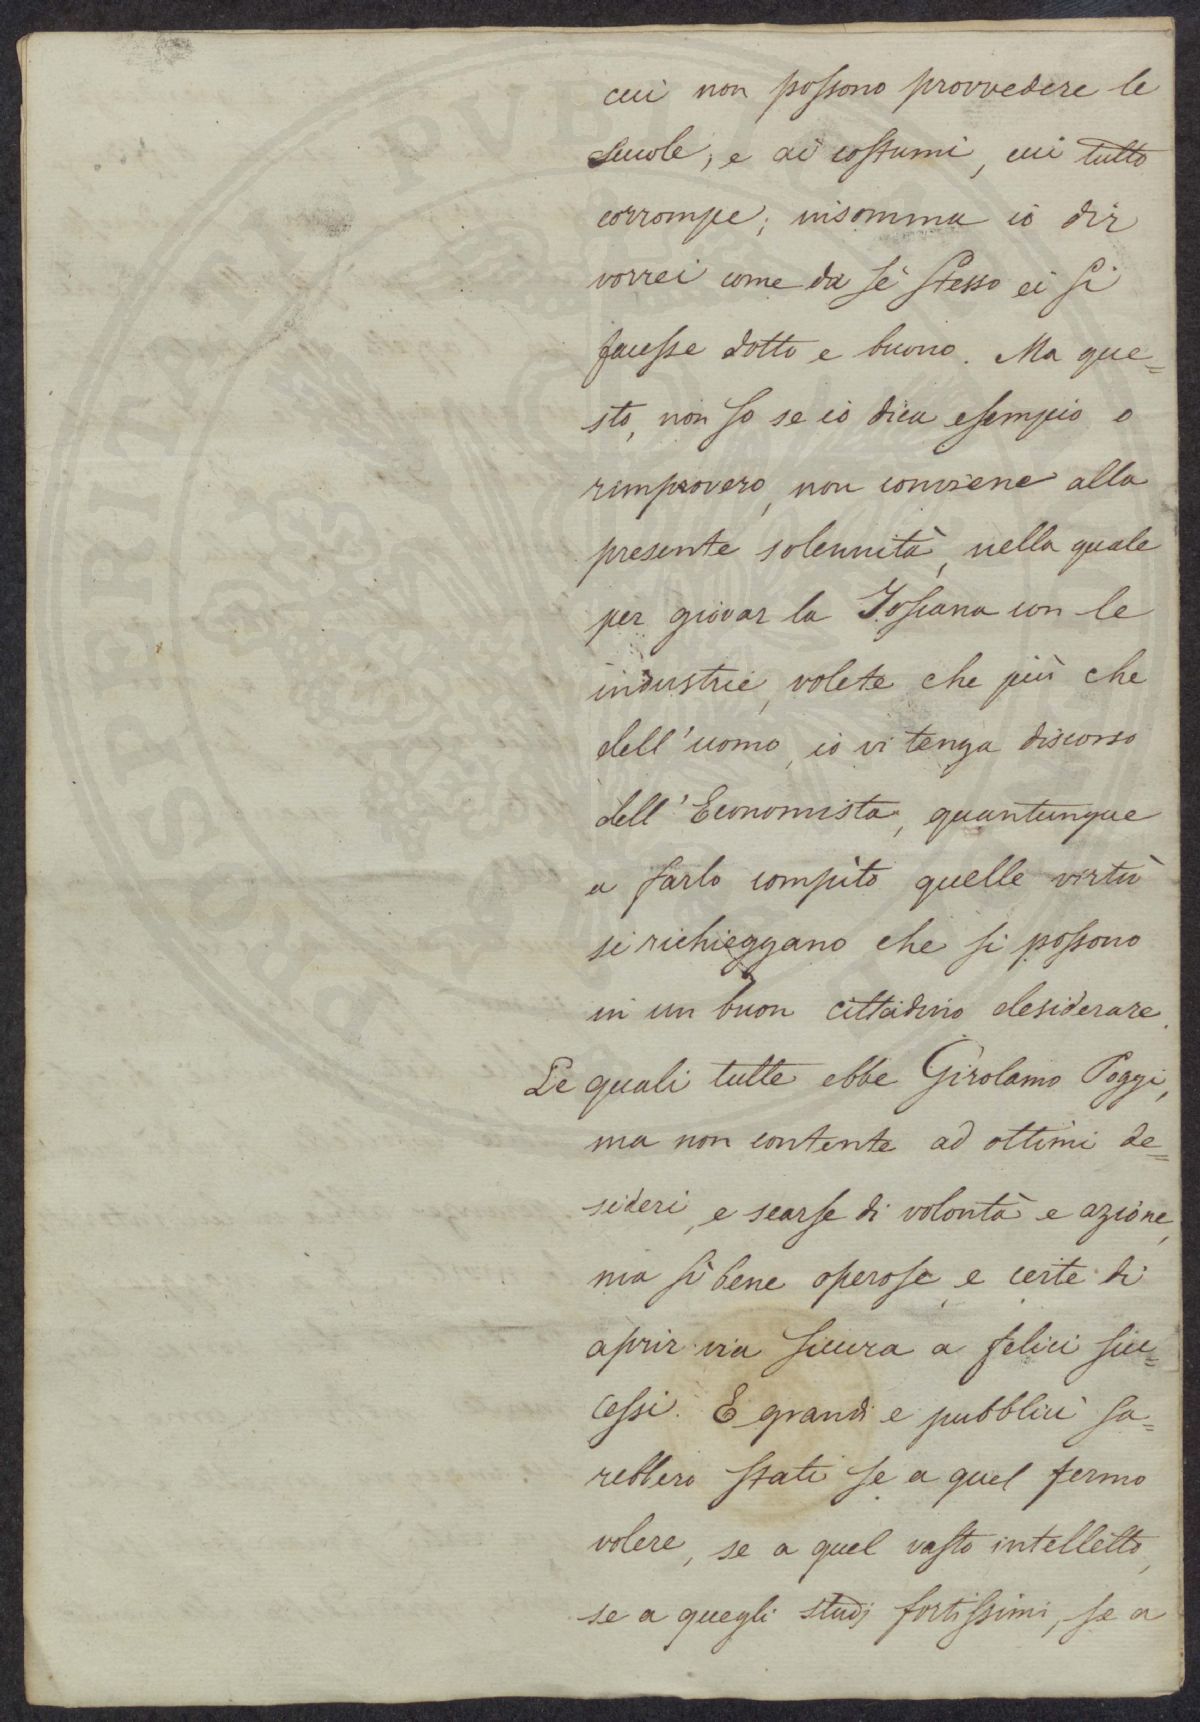 cui non possono provvedere le
scuole, e ai costumi, cui tutto
corrompe; insomma io dir
vorrei come da sè stesso ei si
facesse dotto e buono. Ma que=
sto, non so se io dica esempio o
rimprovero, non conviene alla
presente solennità, nella quale
per giovar la Toscana con le
industrie, volete che più che
dell'uomo, io vi tenga discorso
dell'Economista, quantunque
a farlo compìto quelle virtù
si richieggano che si possono
in un buon cittadino desiderare.
Le quali tutte ebbe Girolamo Poggi,
ma non contente ad ottimi de=
sideri, e scarse di volontà e azione,
ma sì bene operose, e certe di
aprir via sicura a felici suc=
cessi. E grandi e pubblici sa=
rebbero stati se a quel fermo
volere, se a quel vasto intelletto,
se a quegli studj fortissimi, se a